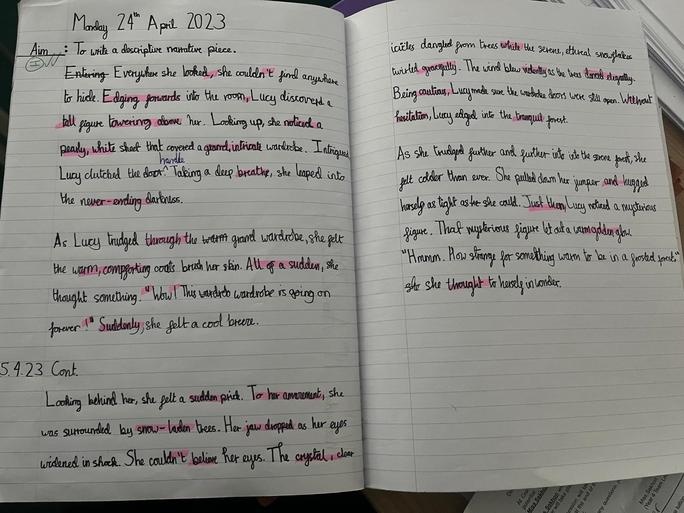 Monday 24th April 2023
Aim : To write a descriptive narrative piece.
I
Entering Everywhere she looked, she couldn't find anywhere
to hide. Edging forwards into the room, Lucy discovered a
tall figure towering above her. Looking up, she noticed a
pearly, white sheet that covered a grand, intricate wardrobe. Intrigued
Lucy clutched the door handle. Taking a deep breathe, she leaped into
the never-ending darkness.
As Lucy trudged through the warm grand wardrobe, she felt
the warm, comforting coats brush her skin. All of a sudden, she
thought something. "Wow! This wardrob wardrobe is going on
forever!" Suddenly, she felt a cool breeze.
5.4.23 Cont.
Looking behind her, she felt a sudden prick. To her amazement, she
was surrounded by snow-laden trees. Her jaw dropped as her eyes
widened in shock. She couldn't believe her eyes. The crystal, clear
icicles dangled from trees while the serene, ethereal snowflakes
twirled gracefully. The wind blew violently as the trees danced elegantly.
Being cautious, Lucy made sure the wardrobe doors were still open. Without
hesitation, Lucy edged into the tranquil forest.
As she trudged further and further into the forest, she
felt colder than ever. She pulled down her jumper and hugged
herself as tight as she could. Just then, Lucy noticed a mysterious
figure. That mysterious figure let out a warm golden glow.
"Hmmm. How strange for something warm to be in a frosted forest."
she thought to herself in wonder.